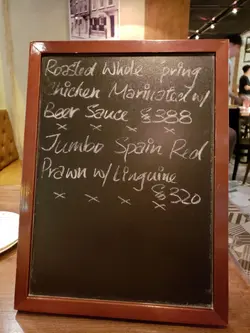 Roasted Whole Spring
Chicken Marinated w/
Beer Sauce $388
x x x x
Jumbo Spain Red
Prawn w/ Linguine
x x x x $320